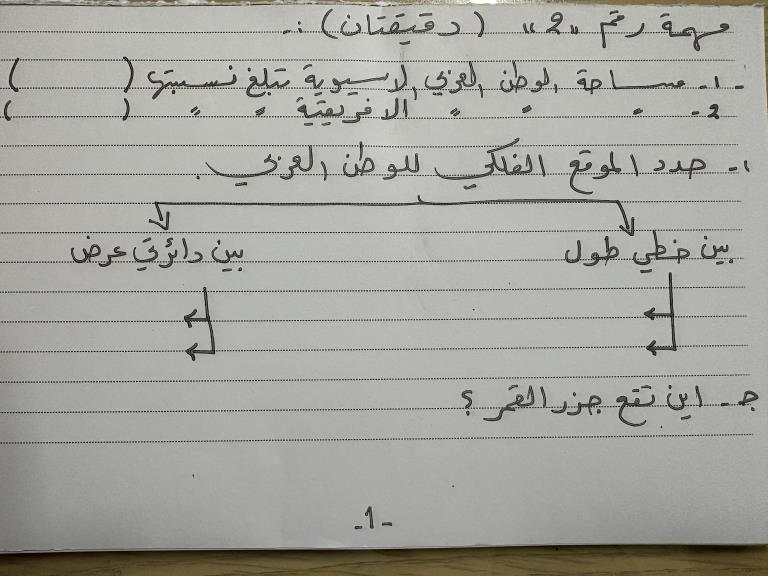 مهمة رقم "2" ( دقيقتان ) :.
-1- مساحة الوطن العربي الاسيوية تبلغ نسبتها (        )
2- " " " الافريقية " " (        )
1- حدد الموقع الفلكي للوطن العربي .
بين خطي طول بين دائرتي عرض
جـ- اين تقع جزر القمر ؟
-1-